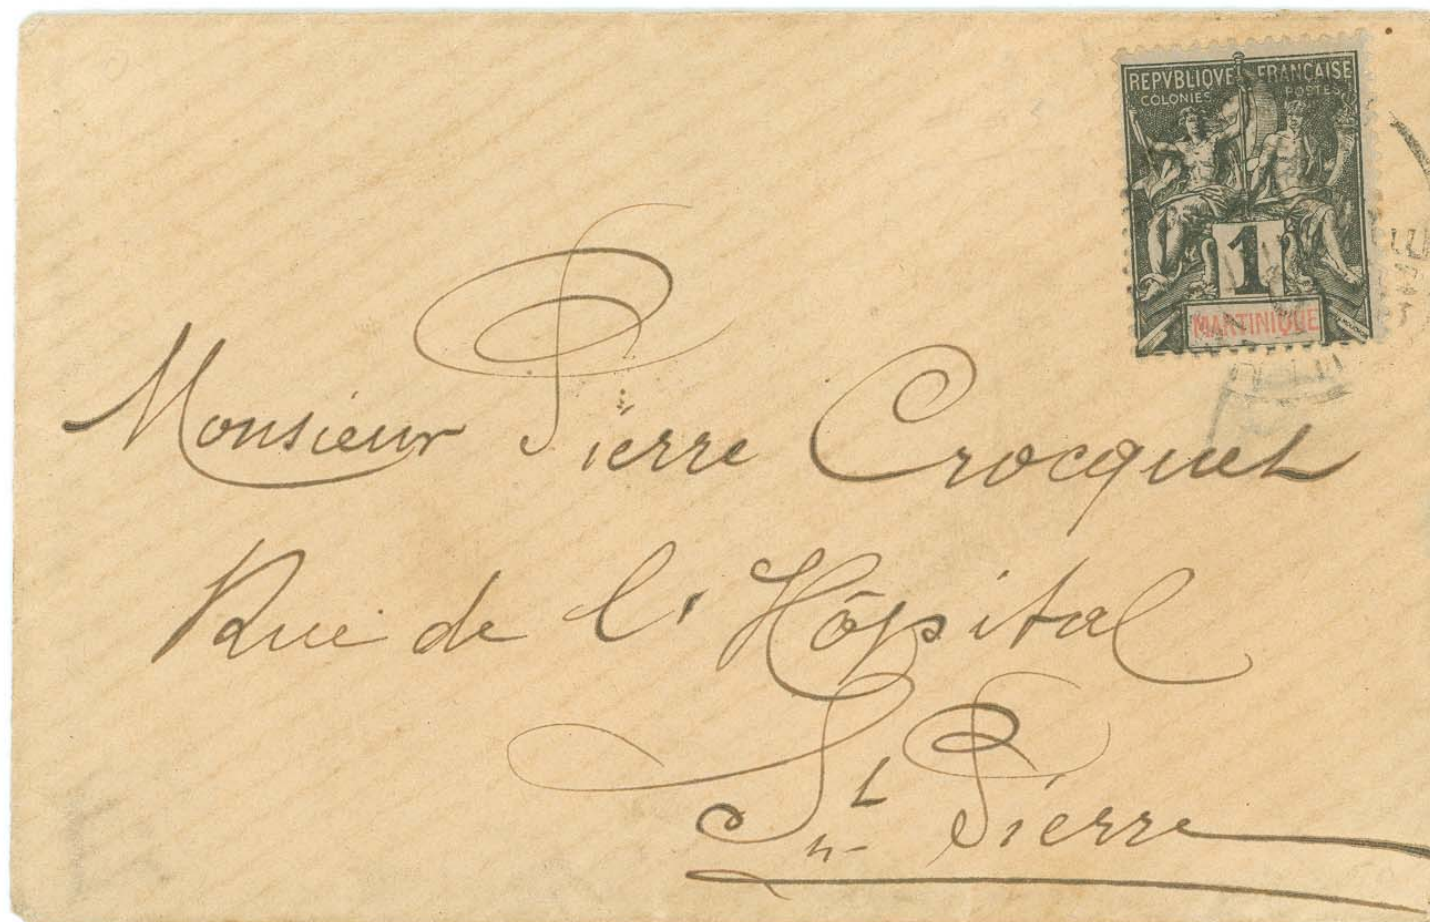 REPVBLIQVE FRANÇAISE
COLONIES POSTES
1
MARTINIQUE
Monsieur Pierre Crocquet
Rue de l'Hôpital
St Pierre